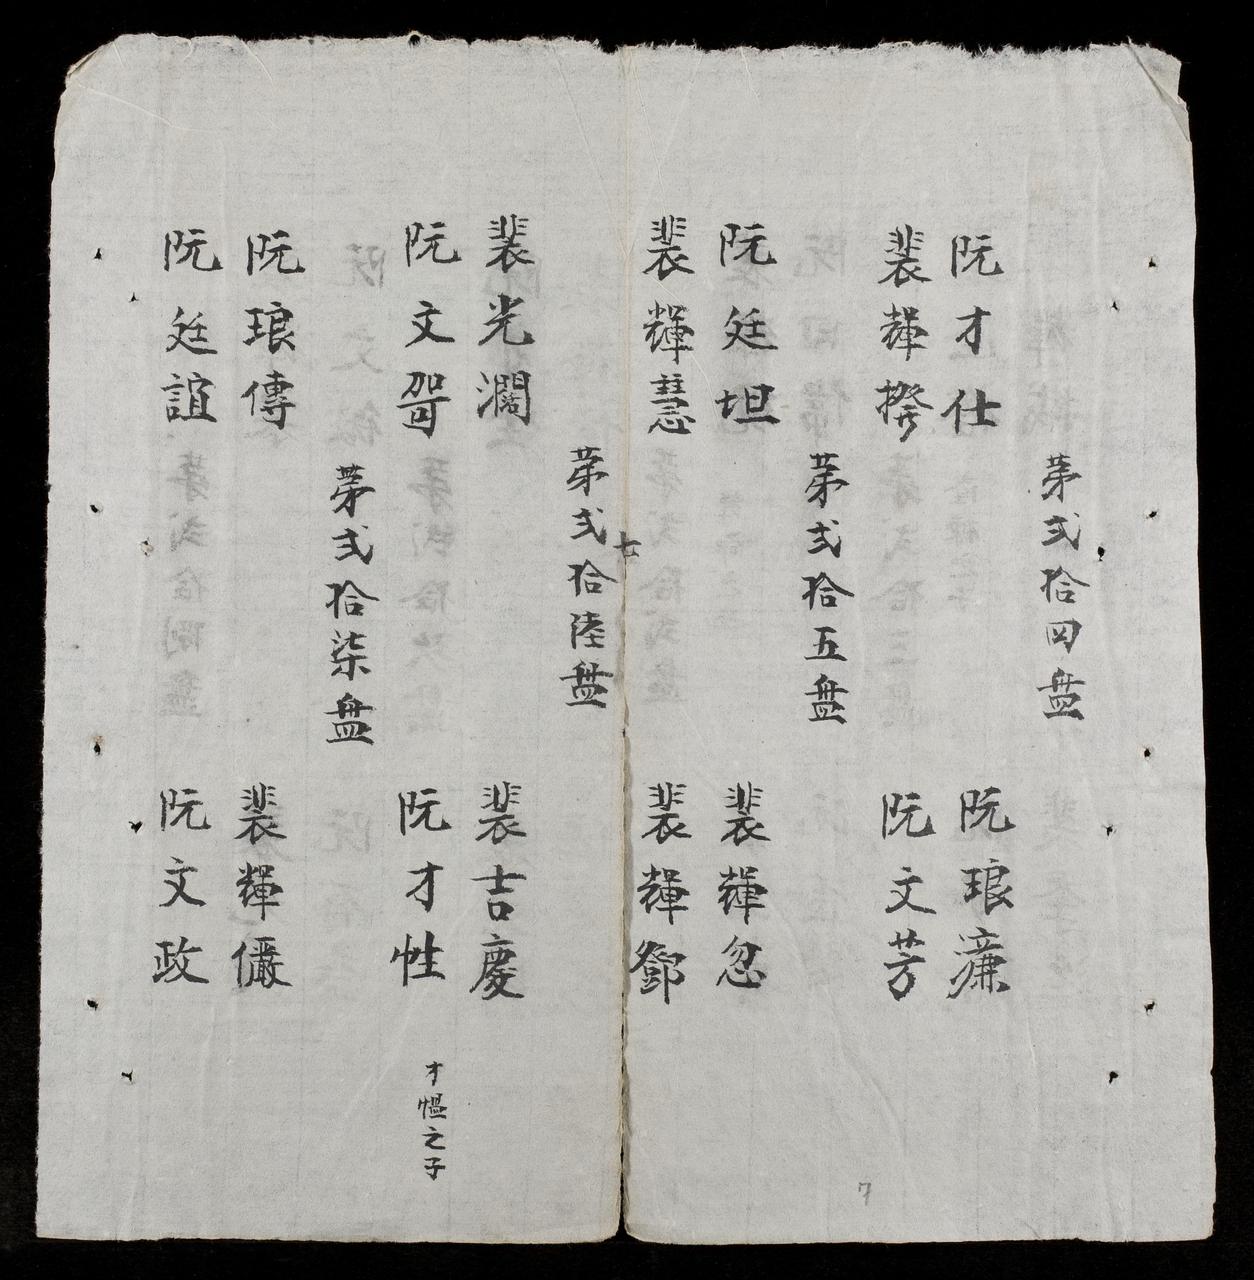 第弍拾四盘
阮才仕
阮琅濂
裴輝揆
阮文芳
第弍拾五盘
阮廷坦
裴輝忽
裴輝慧
裴輝鄧
七
第弍拾陸盘
裴光濶
裴吉慶
阮文哿
阮才性
才愠之子
第弍拾柒盘
阮琅傳
裴輝儼
阮廷誼
阮文政
7